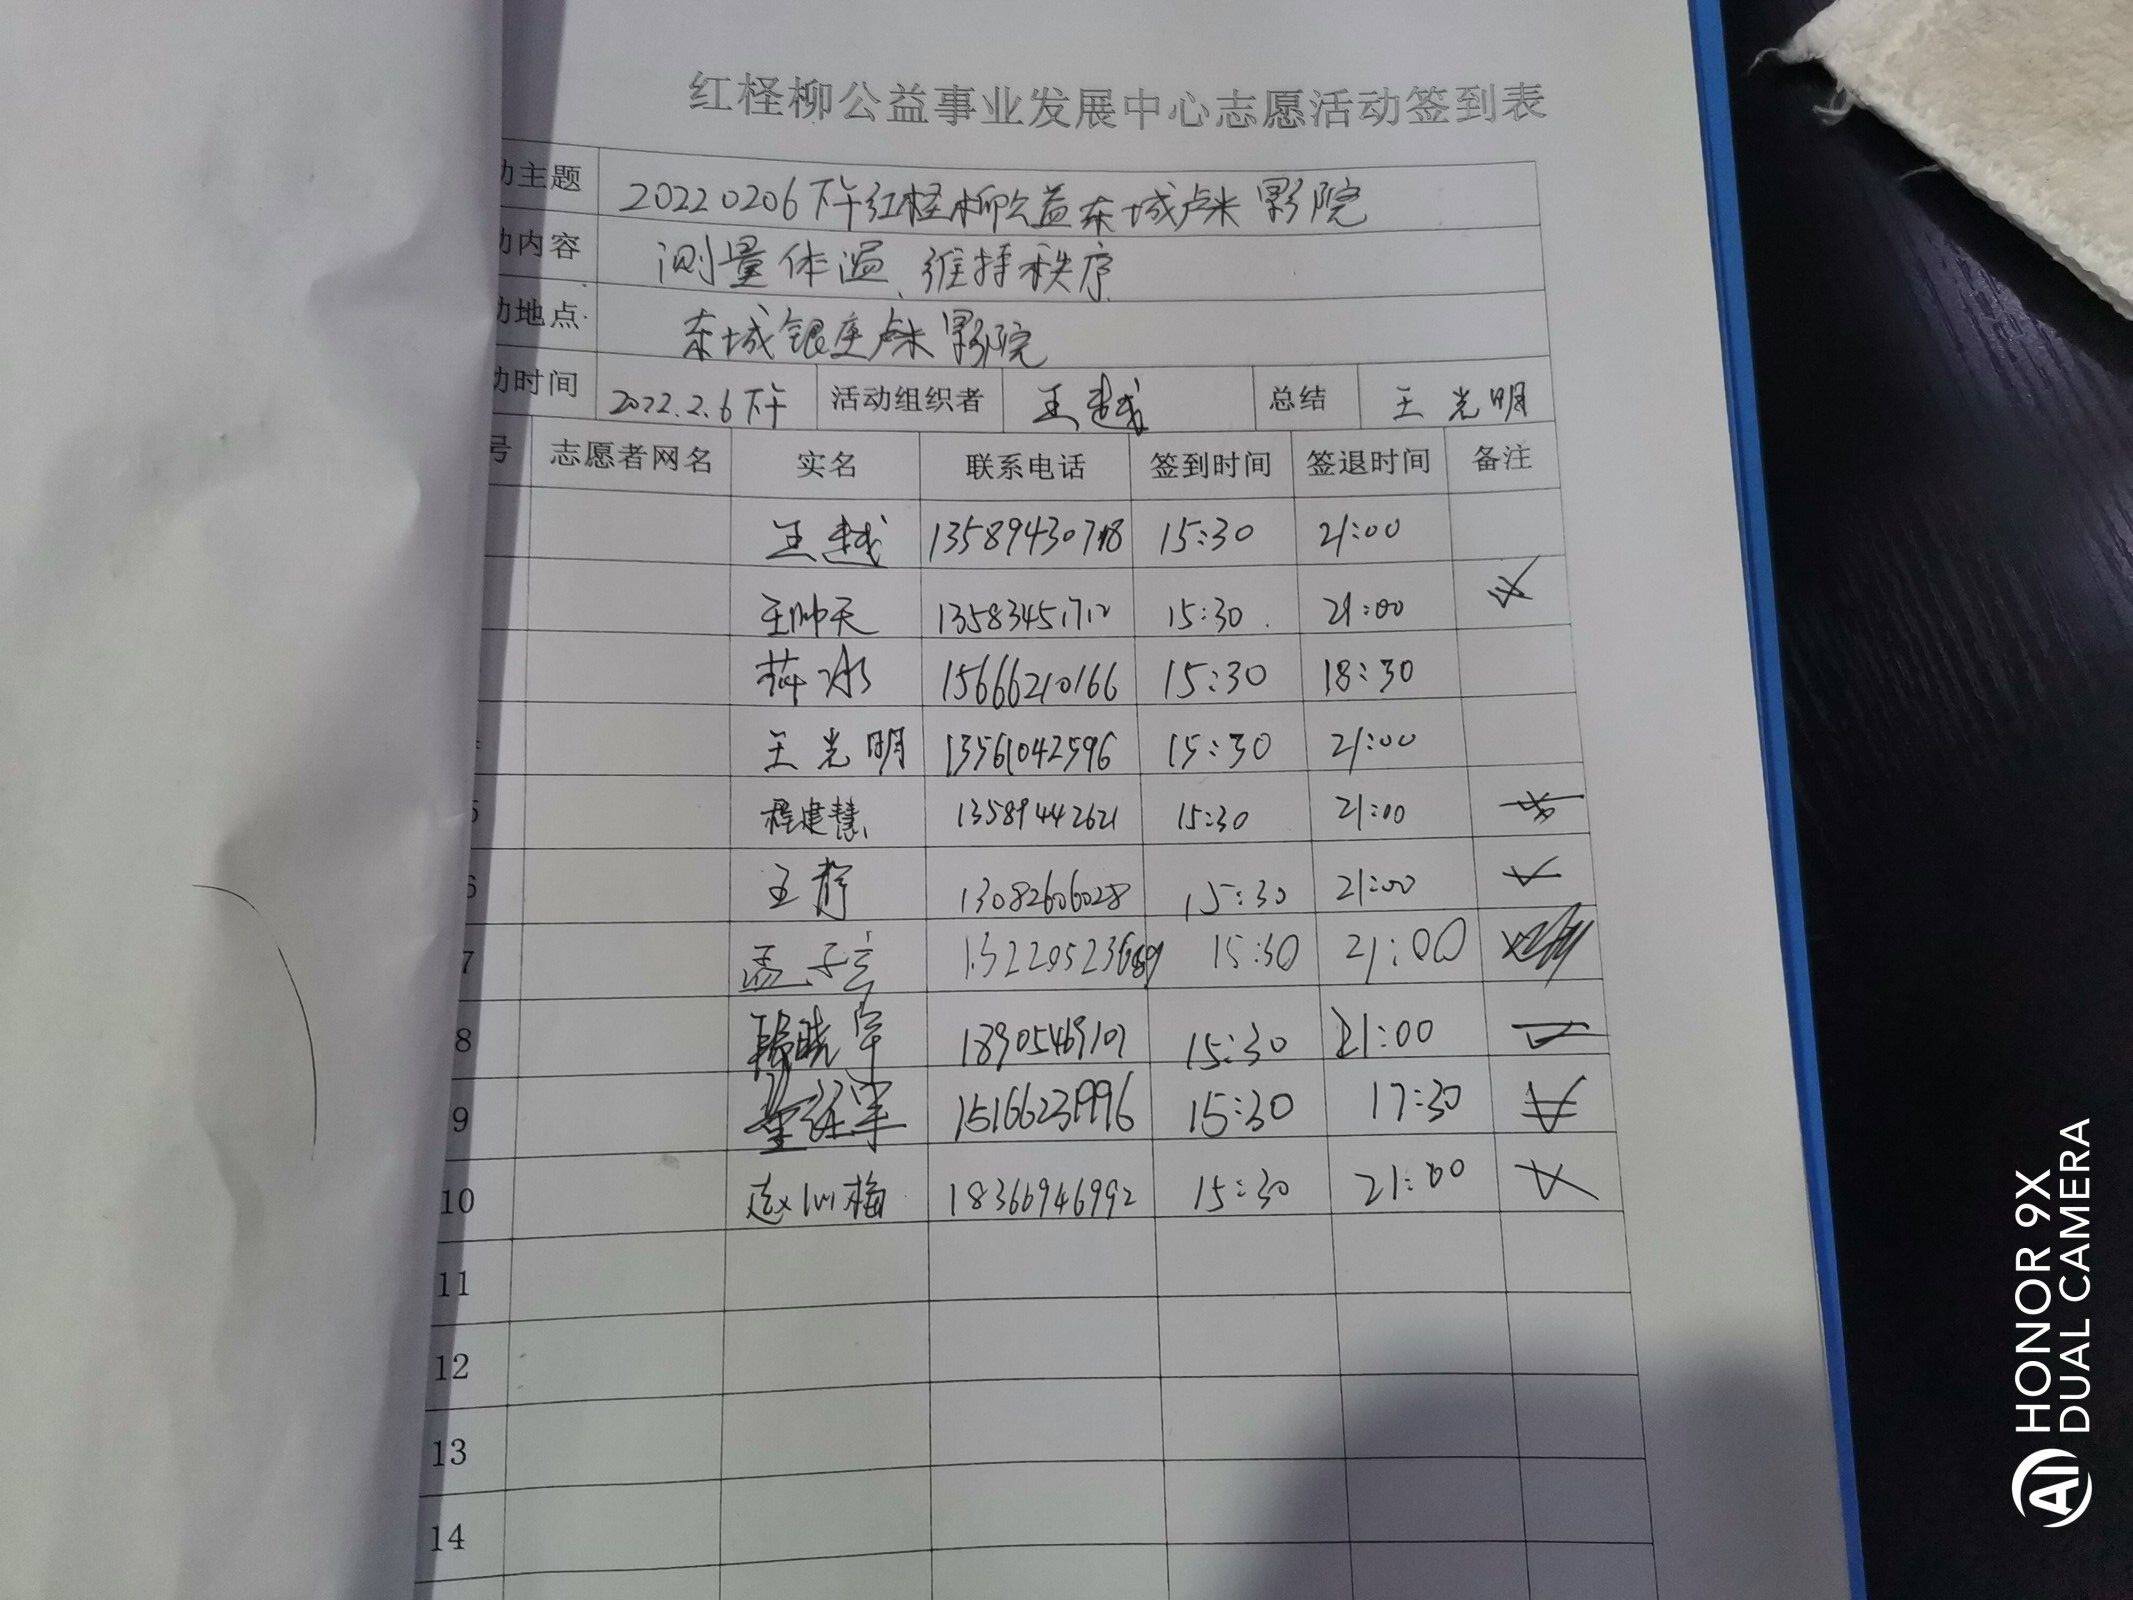 红柽柳公益事业发展中心志愿活动签到表
动主题 20220206下午红柽柳公益东城卢米影院
动内容 测量体温、维持秩序
动地点 东城银座卢米影院
动时间 2022.2.6下午 活动组织者 王越 总结 王光明
号 志愿者网名 实名 联系电话 签到时间 签退时间 备注
王越 13589430718 15:30 21:00
王帅天 13583451712 15:30 21:00
15666210166 15:30 18:30
王光明 13561042596 15:30 21:00
5 程建慧 13589442621 15:30 21:00
6 王静 13082606028 15:30 21:00
7 孟子言 15:30 21:00
8 18905469107 15:30 21:00
9 15166231996 15:30 17:30
10 赵 梅 18366946992 15:30 21:00
11
12
13
14
HONOR 9X
DUAL CAMERA
AI